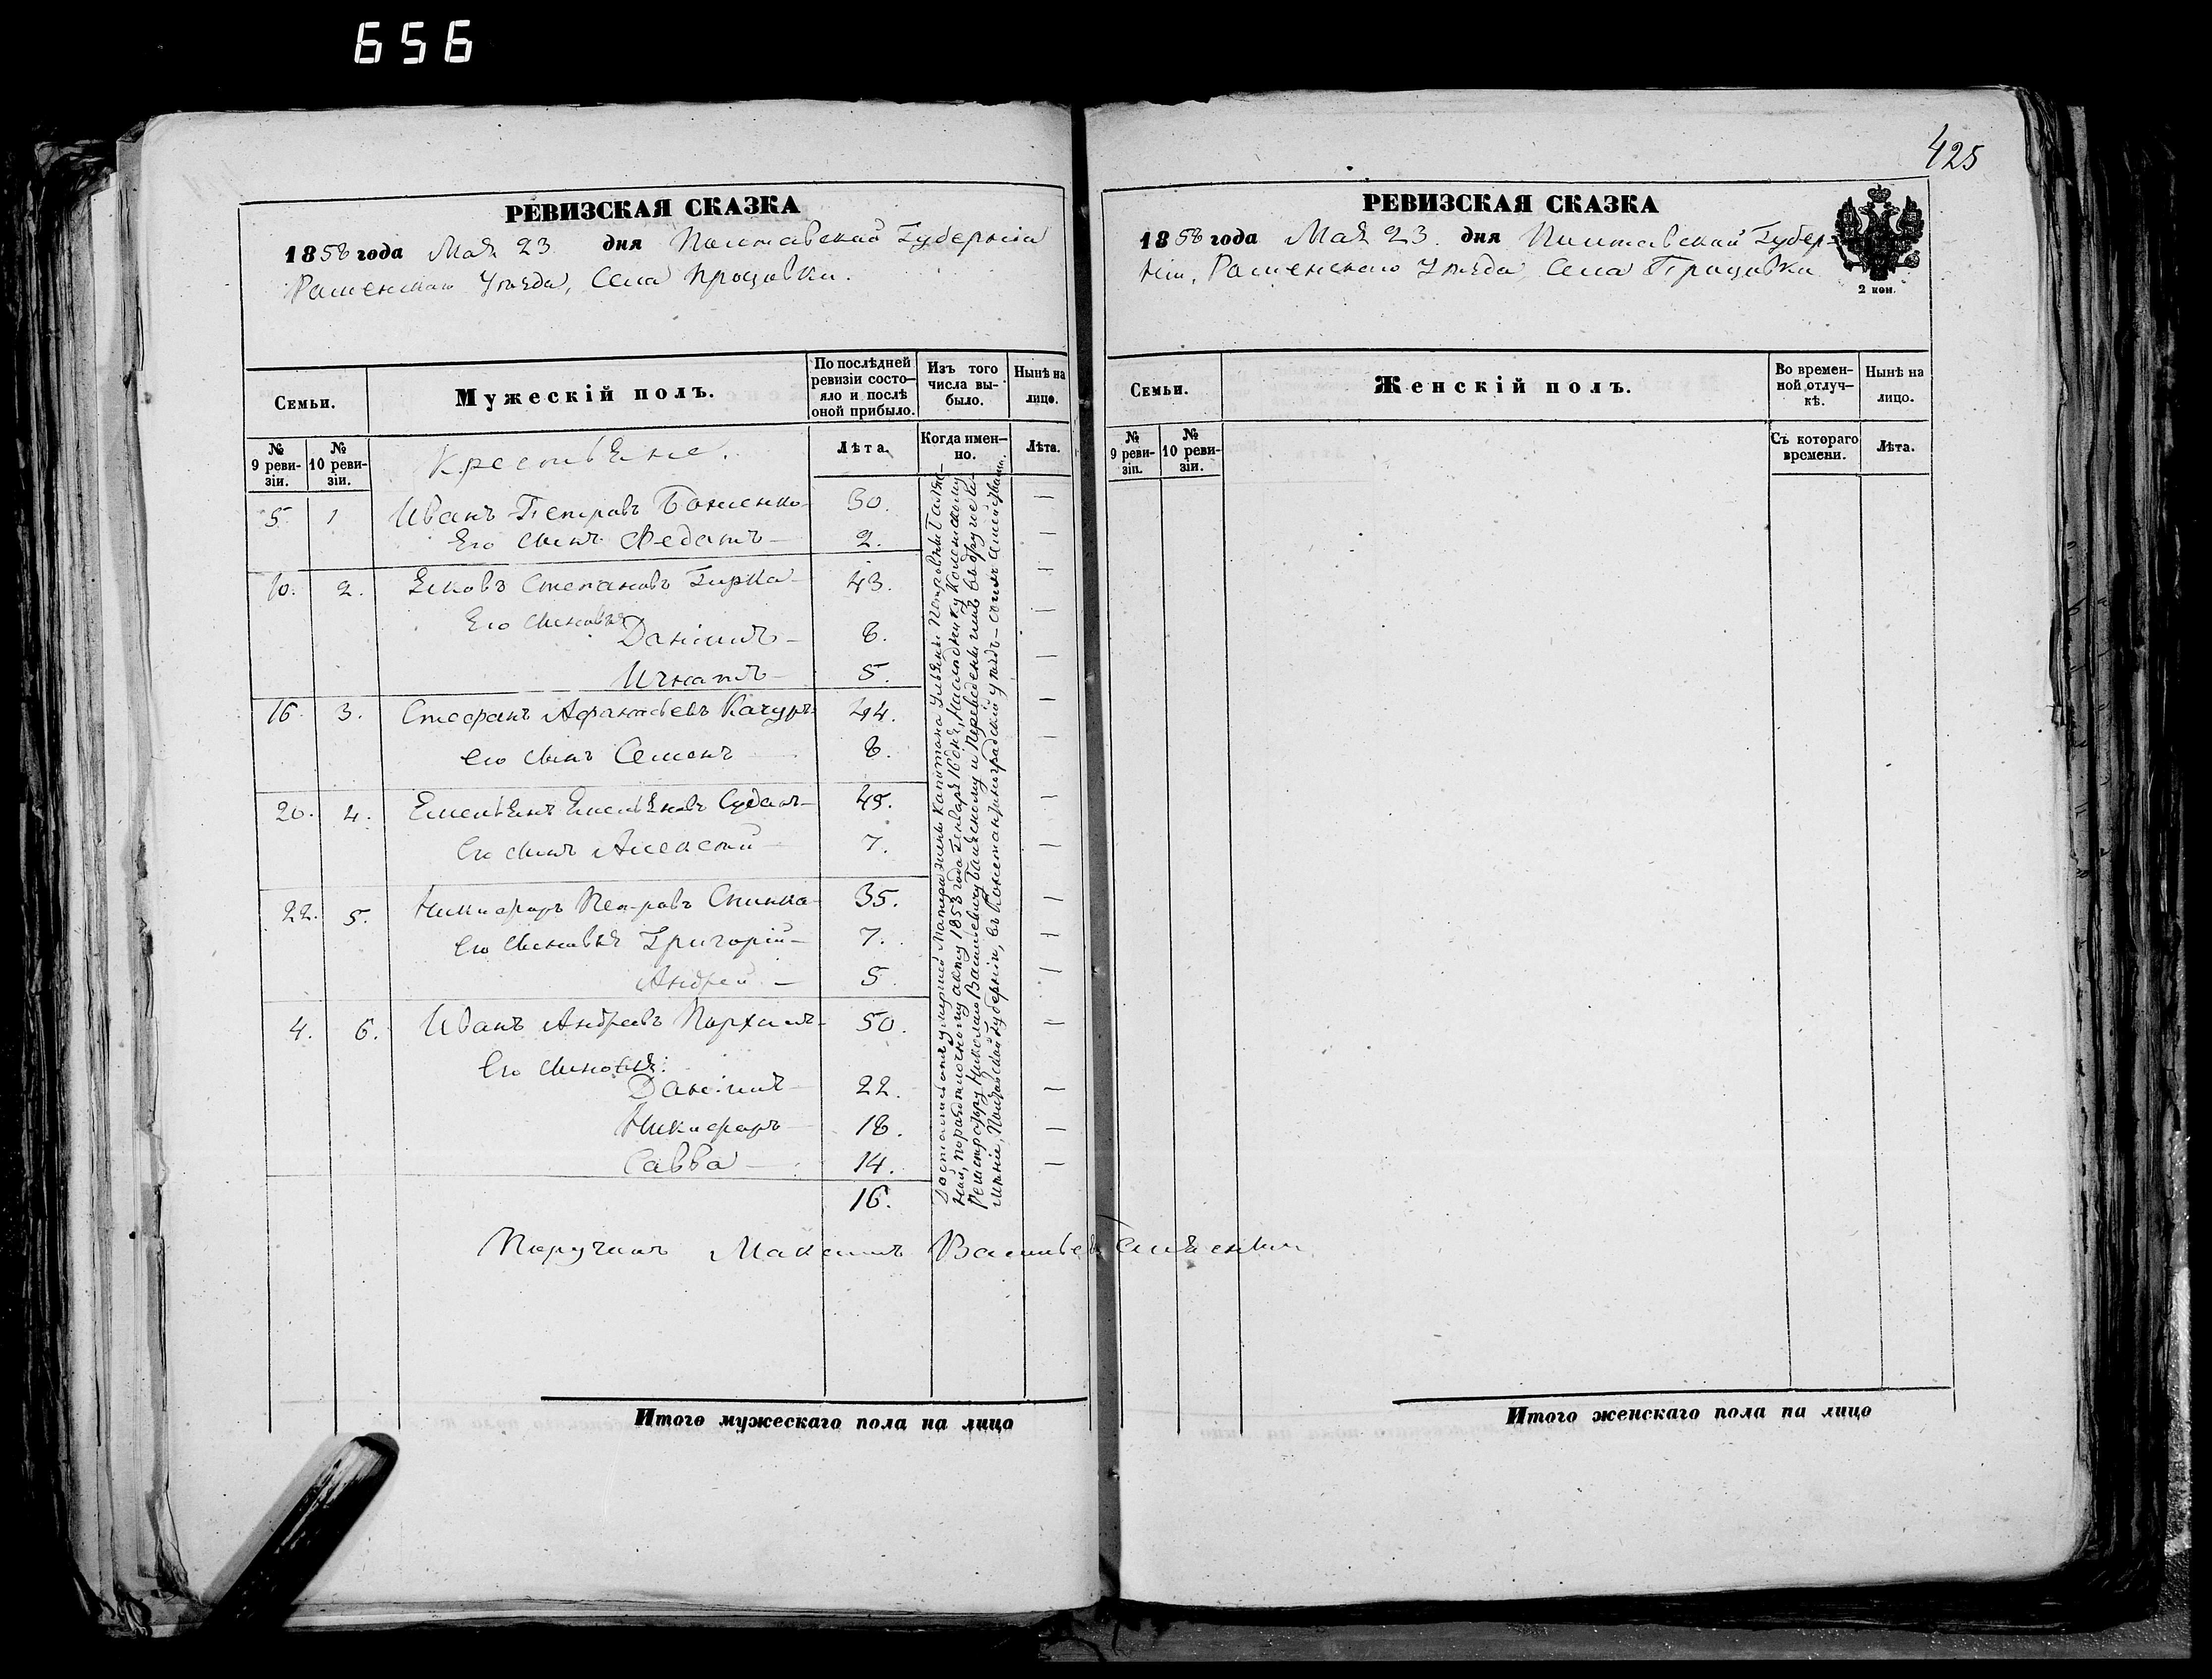 656
425
РЕВИЗСКАЯ СКАЗКА
1858 года Мая 23 дня Полтавской Губерніи
Роменскаго Уѣзда, Села Процовки.
Семьи.
Мужескій полъ.
По послѣдней ревизіи состо-
яло и послѣ оной прибыло.
Изъ того числа вы-
было.
Нынѣ на лицо.
№ 9 реви-
зіи.
№ 10 реви-
зіи.
Лѣта.
Когда имен-
но.
Лѣта.
Крестьяне.
5. 1 Иванъ Петровъ Боженко 30. —
Его сынъ Федотъ — 2. —
10. 2. Яковъ Степановъ Гирка — 43. —
Его сыновья —
Даніилъ — 8.
Игнатъ — 5. —
16. 3. Стефанъ Афанасьевъ Качуръ 44. —
его сынъ Семенъ — 8. —
20. 4. Емельянъ Емельяновъ Судакъ — 45. —
Его сынъ Алексѣй — 7. —
22. 5. Никифоръ Петровъ Спинка 35. —
Его сыновья Григорій — 7. —
Андрей — 5 —
4. 6. Иванъ Андреевъ Пархомъ — 50. —
Его сыновья:
Даніилъ 22. —
Никифоръ 18. —
Савва — 14. —
16.
Достались отъ умершей матери жены Капитана Ульяны Петровны
ной, по раздѣлочному акту 1858 года Генваря 16 дня, наслѣднику Колежскому
Регистратору Николаю Васильевичу и переведены имъ въ другое его
имѣніе, Полтавской губерніи, въ Константиноградскій уѣздъ —
Поручикъ Максимъ Васильевъ
Итого мужескаго пола на лицо
РЕВИЗСКАЯ СКАЗКА
1858 года Мая 23. дня Полтавской Губер-
ніи, Роменскаго Уѣзда, Села Процовки
2 коп.
Семьи.
Женскій полъ.
Во времен-
ной отлуч-
кѣ.
Нынѣ на лицо.
№ 9 реви-
зіи.
№ 10 реви-
зіи.
Съ котораго времени.
Лѣта.
Итого женскаго пола на лицо